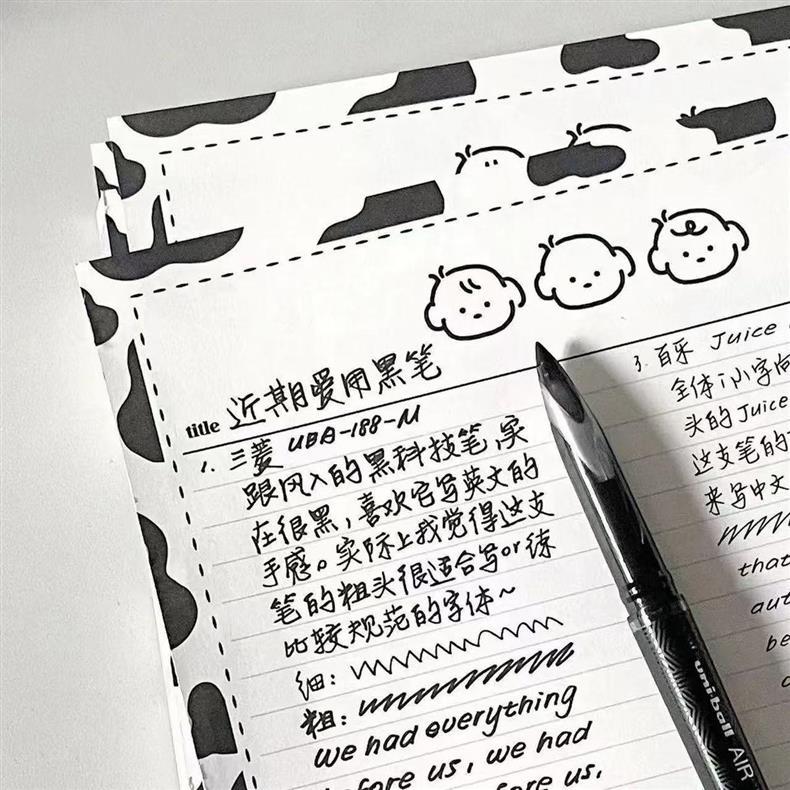 title 近期爱用黑笔
1. 三菱 UBA-188-M
跟风入的黑科技笔,实
在很黑,喜欢它写英文的
手感。实际上我觉得这支
笔的粗头很适合写or练
比较规范的字体~
细:
粗:
We had everything
before us, we had
us,
3. 百乐 Juice
全体i小字向
头的Juice
这支笔的
来写中文
that
aut
be
uni-ball AIR